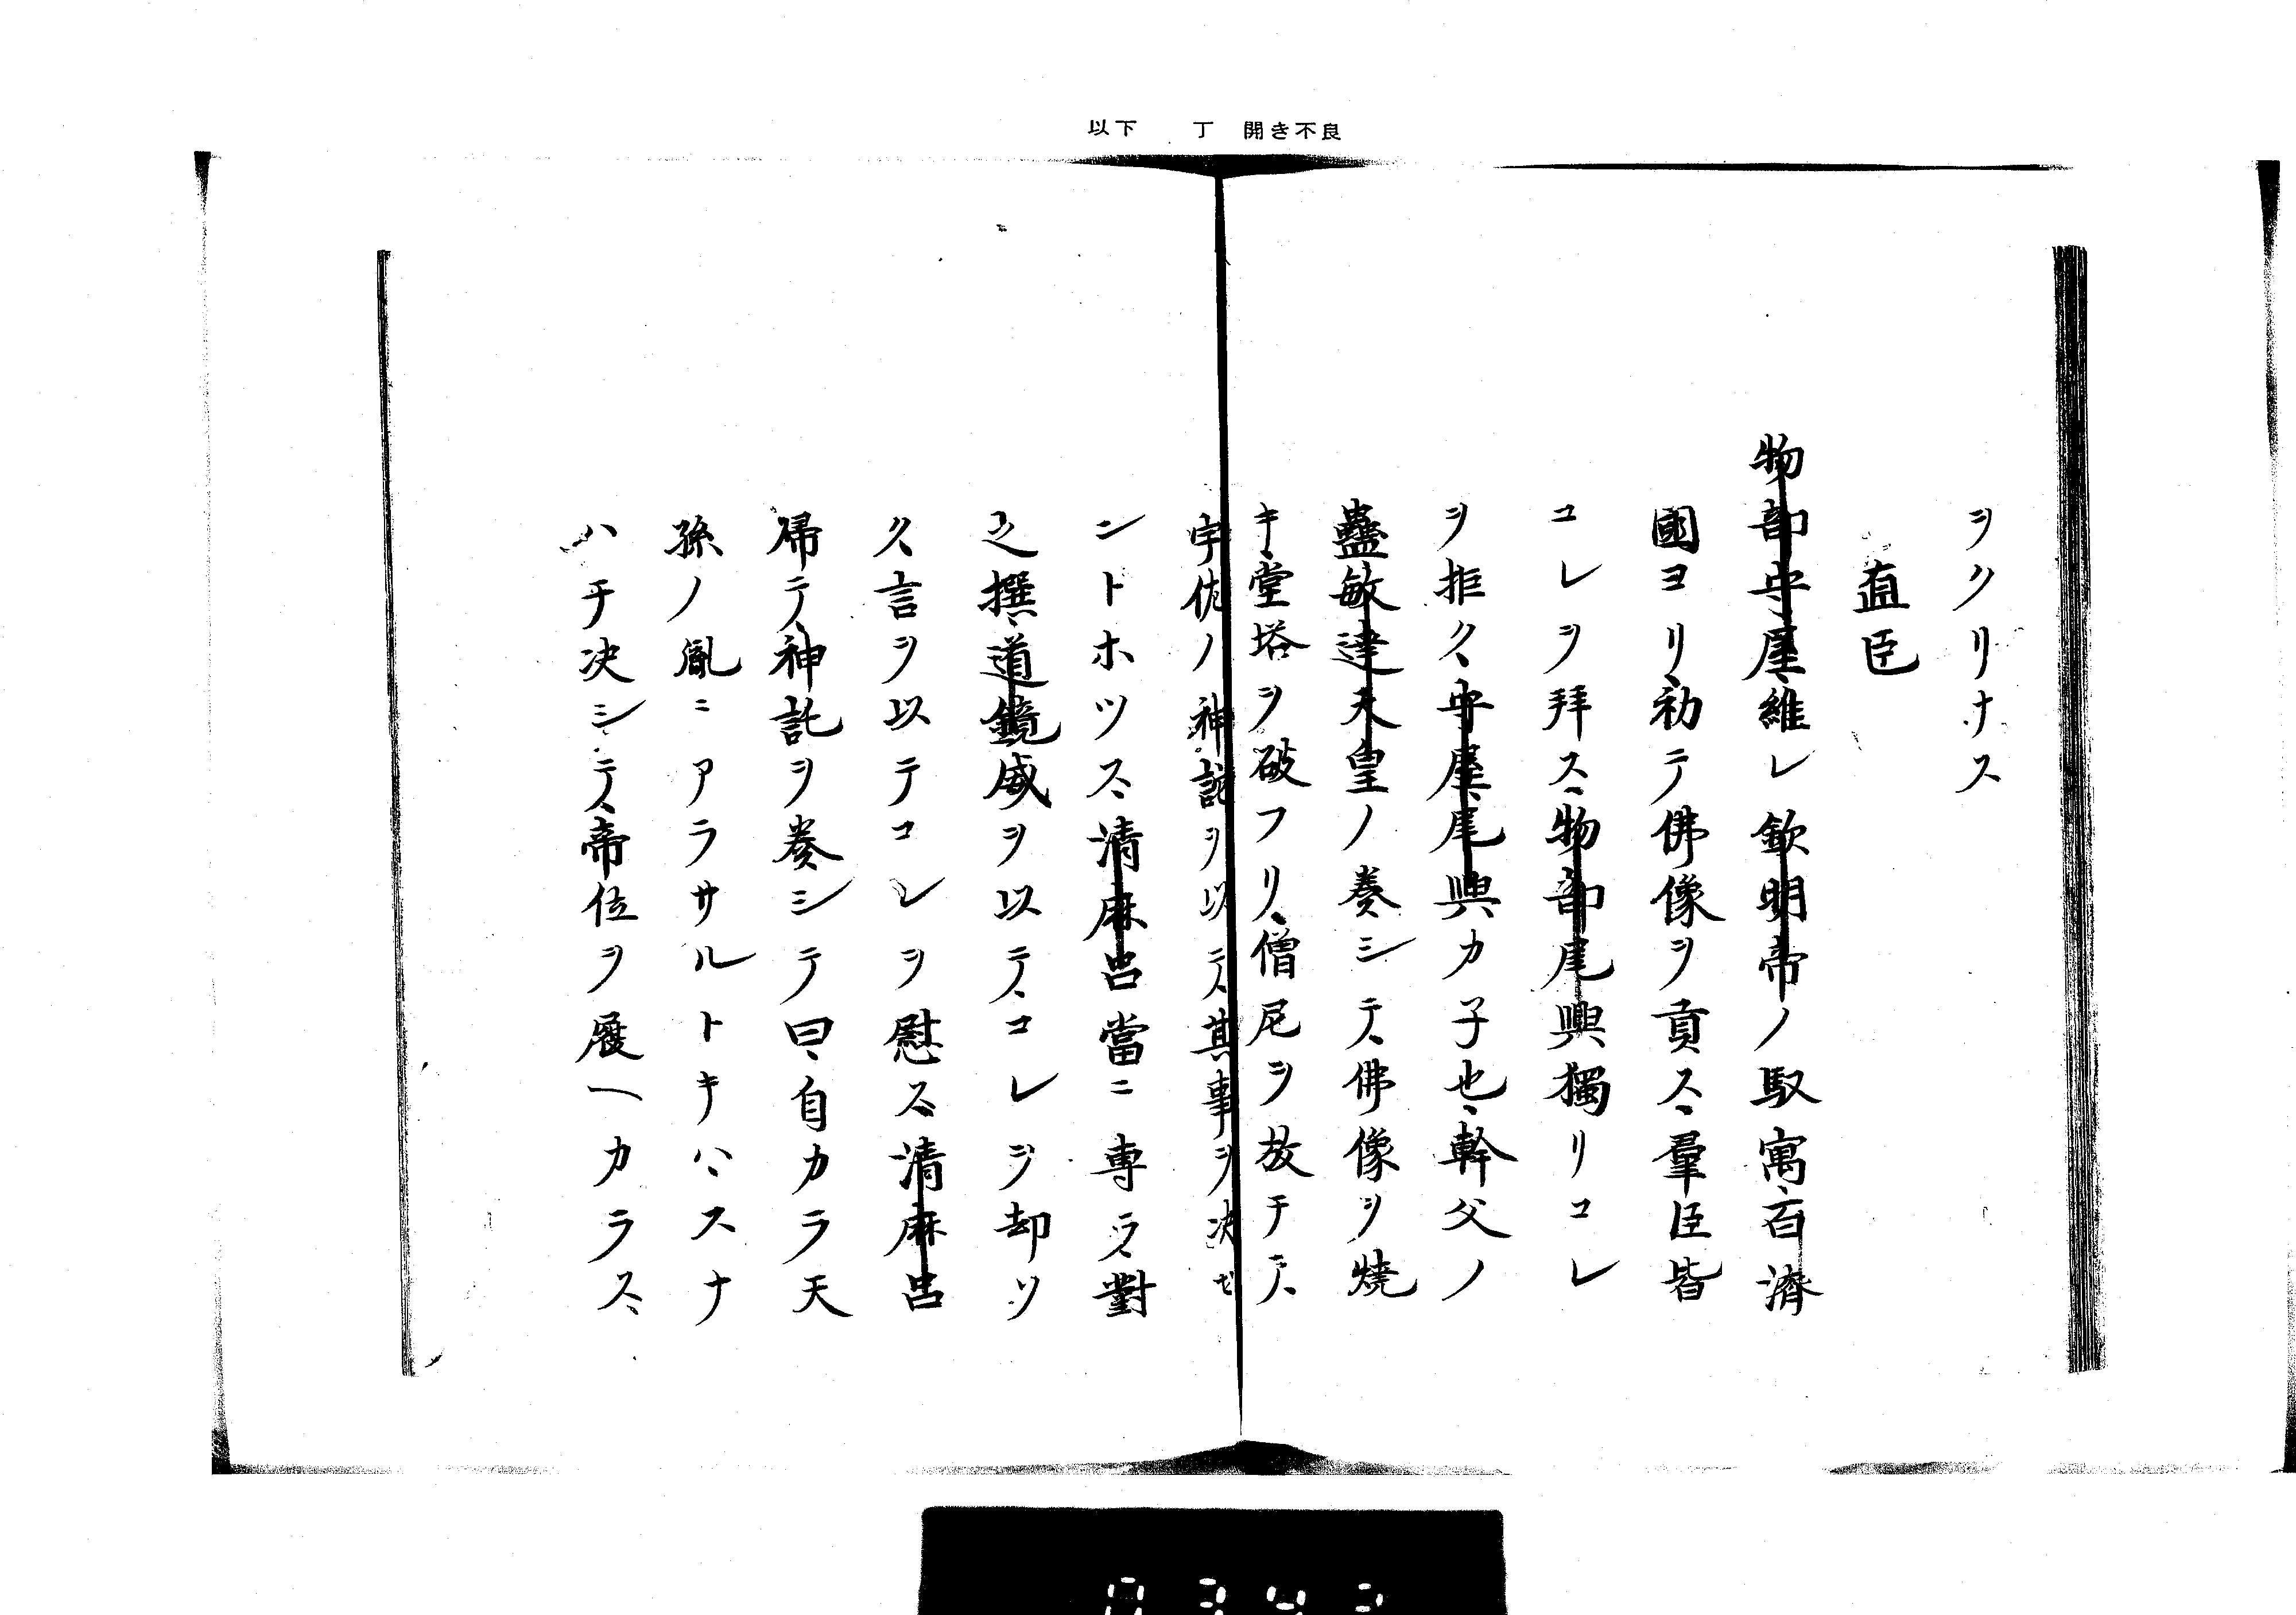 以下　　丁　開き不良
ヲクリナス
直臣
物部守屋維レ欽明帝ノ馭寓百濟
國ヨリ初テ佛像ヲ貢ス羣臣皆
コレヲ拜ス物部尾輿獨リコレ
ヲ拒ク守屋尾輿カ子也幹父ノ
蠱敏達天皇ノ奏シテ佛像ヲ燒
キ堂塔ヲ破フリ僧尼ヲ放チテ
宇佐ノ神託ヲ以テ其事ヲ决セ
ントホツス清麻呂當ニ専ラ對
之撰道鏡威ヲ以テコレヲ却ソ
ク言ヲ以テコレヲ慰ス清麻呂
帰テ神託ヲ奏シテ曰自カラ天
孫ノ胤ニアラサルトキハスナ
ハチ决シテ帝位ヲ履ヘカラス